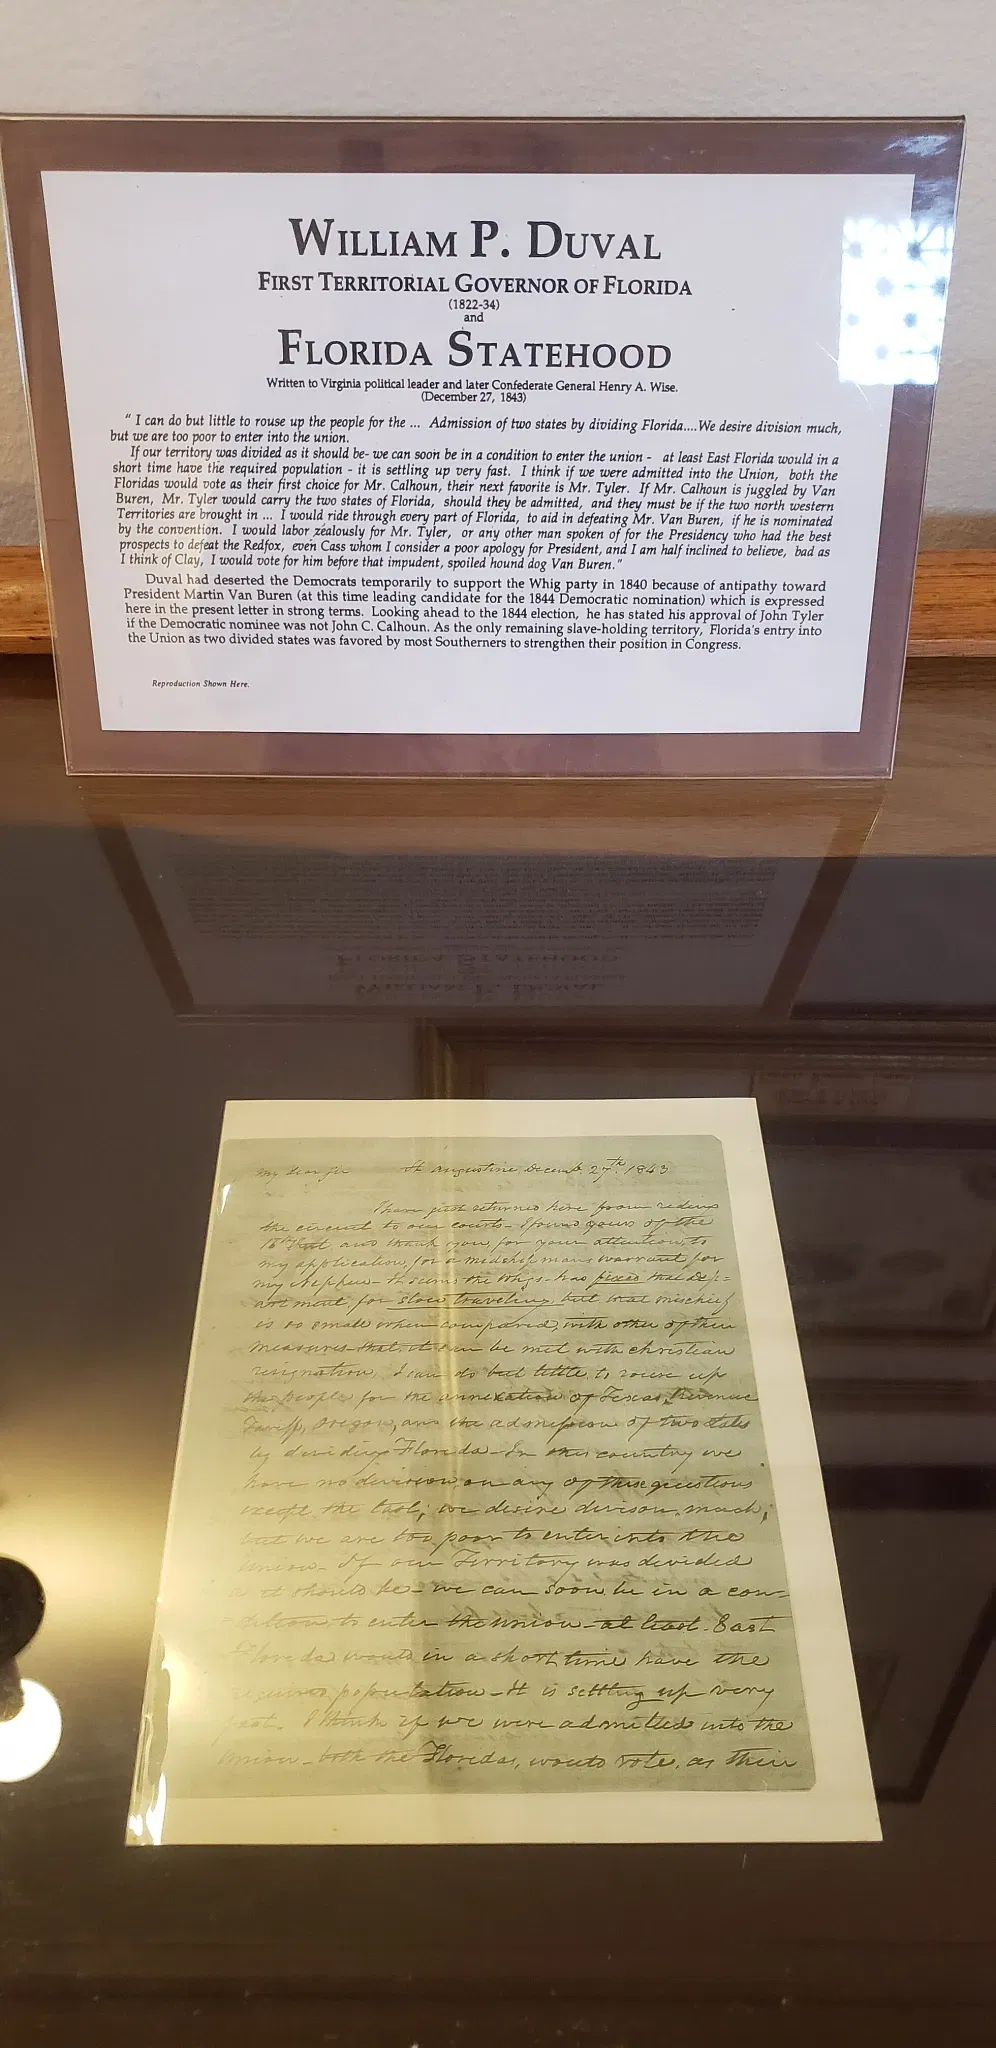 WILLIAM P. DUVAL
FIRST TERRITORIAL GOVERNOR OF FLORIDA
(1822-34)
and
FLORIDA STATEHOOD
Written to Virginia political leader and later Confederate General Henry A. Wise.
(December 27, 1843)
" I can do but little to rouse up the people for the ... Admission of two states by dividing Florida....We desire division much,
but we are too poor to enter into the union.
If our territory was divided as it should be- we can soon be in a condition to enter the union - at least East Florida would in a
short time have the required population - it is settling up very fast. I think if we were admitted into the Union, both the
Floridas would vote as their first choice for Mr. Calhoun, their next favorite is Mr. Tyler. If Mr. Calhoun is juggled by Van
Buren, Mr. Tyler would carry the two states of Florida, should they be admitted, and they must be if the two north western
Territories are brought in ... I would ride through every part of Florida, to aid in defeating Mr. Van Buren, if he is nominated
by the convention. I would labor zealously for Mr. Tyler, or any other man spoken of for the Presidency who had the best
prospects to defeat the Redfox, even Cass whom I consider a poor apology for President, and I am half inclined to believe, bad as
I think of Clay, I would vote for him before that impudent, spoiled hound dog Van Buren."
Duval had deserted the Democrats temporarily to support the Whig party in 1840 because of antipathy toward
President Martin Van Buren (at this time leading candidate for the 1844 Democratic nomination) which is expressed
here in the present letter in strong terms. Looking ahead to the 1844 election, he has stated his approval of John Tyler
if the Democratic nominee was not John C. Calhoun. As the only remaining slave-holding territory, Florida's entry into
the Union as two divided states was favored by most Southerners to strengthen their position in Congress.
Reproduction Shown Here.
My Dear Sir St Augustine, Decemb. 27th 1843
I have just returned here from rideing
the circuit to our courts - I found yours of the
and thank you, for your attention, to
my application, for a midshipmans warrant for
my Nephew - It seems the Whigs - has fixed that Dep-
artment, for slow traveling, but that mischief
is so small when compared, with other of their
measures that it can be met with christian
resignation. I can do but little, to rouse up
the people for the annexation of Texas, Revenue
Tariff, Oregon, and the admission of two states
by dividing Florida - In this country we
have no division on any of these questions
except the last, we desire divison much,
but we are too poor to enter into the
Union - If our Territory was devided
as it should be - we can soon be in a con-
dition to enter the union - at least East
Florida would in a short time have the
required population - It is settling up very
fast. I think if we were admitted into the
Union - both the Floridas, would vote, as their